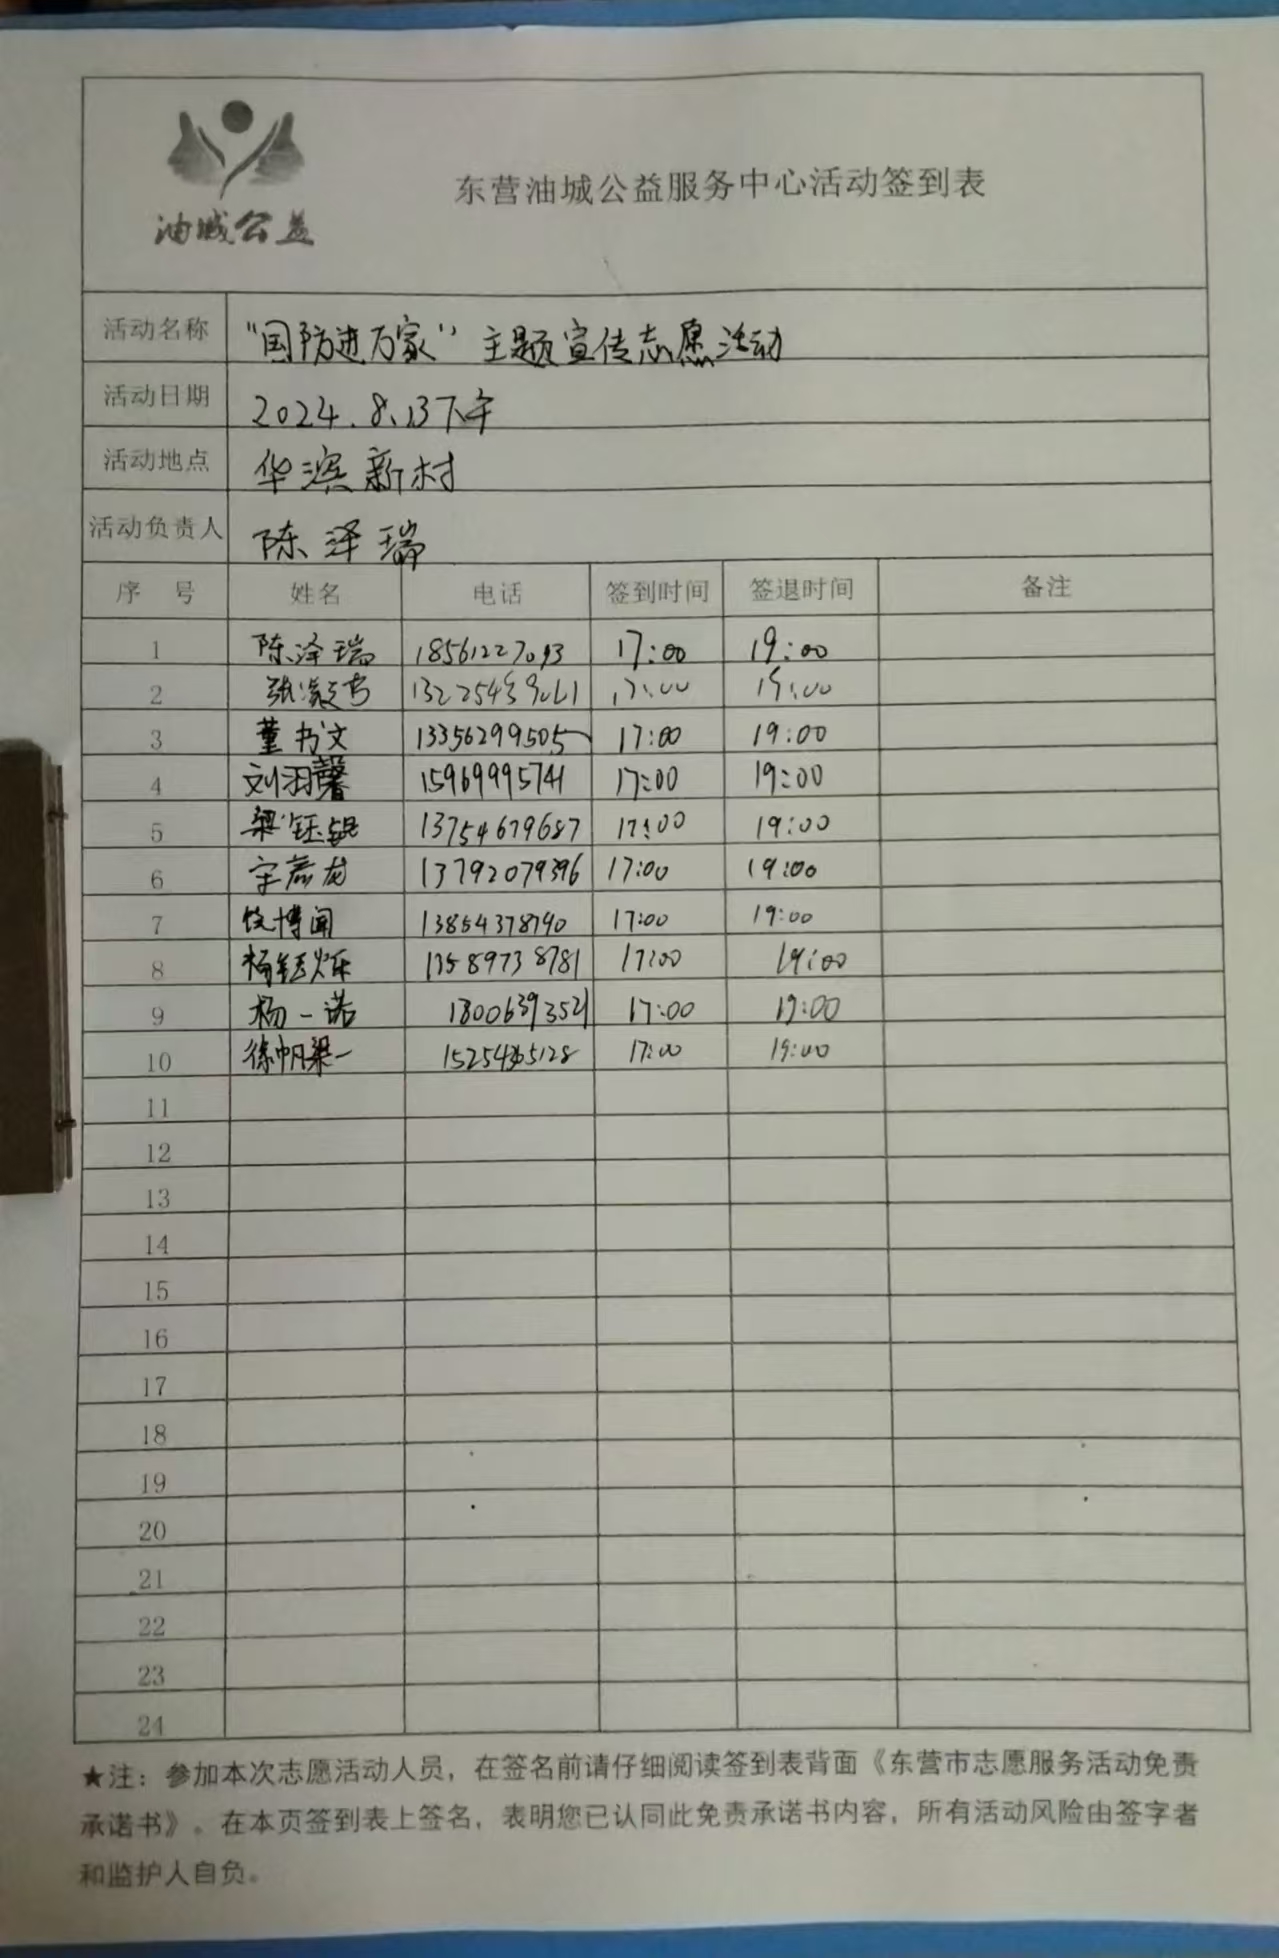 油城公益
东营油城公益服务中心活动签到表
活动名称 "国防进万家"主题宣传志愿活动
活动日期 2024.8.13下午
活动地点 华滨新村
活动负责人 陈泽瑞
序 号 姓名 电话 签到时间 签退时间 备注
1 陈泽瑞 17:00 19:00
2 17:00 19:00
3 董书文 13356299505 17:00 19:00
4 刘羽馨 15969995741 17:00 19:00
5 13754679687 17:00 19:00
6 13792079396 17:00 19:00
7 博闻 13854378790 17:00 19:00
8 杨钰烁 13589738781 17:00 19:00
9 杨一诺 18006393521 17:00 19:00
10 徐帆梁一 17:00 19:00
11
12
13
14
15
16
17
18
19
20
21
22
23
24
★注：参加本次志愿活动人员，在签名前请仔细阅读签到表背面《东营市志愿服务活动免责
承诺书》。在本页签到表上签名，表明您已认同此免责承诺书内容，所有活动风险由签字者
和监护人自负。